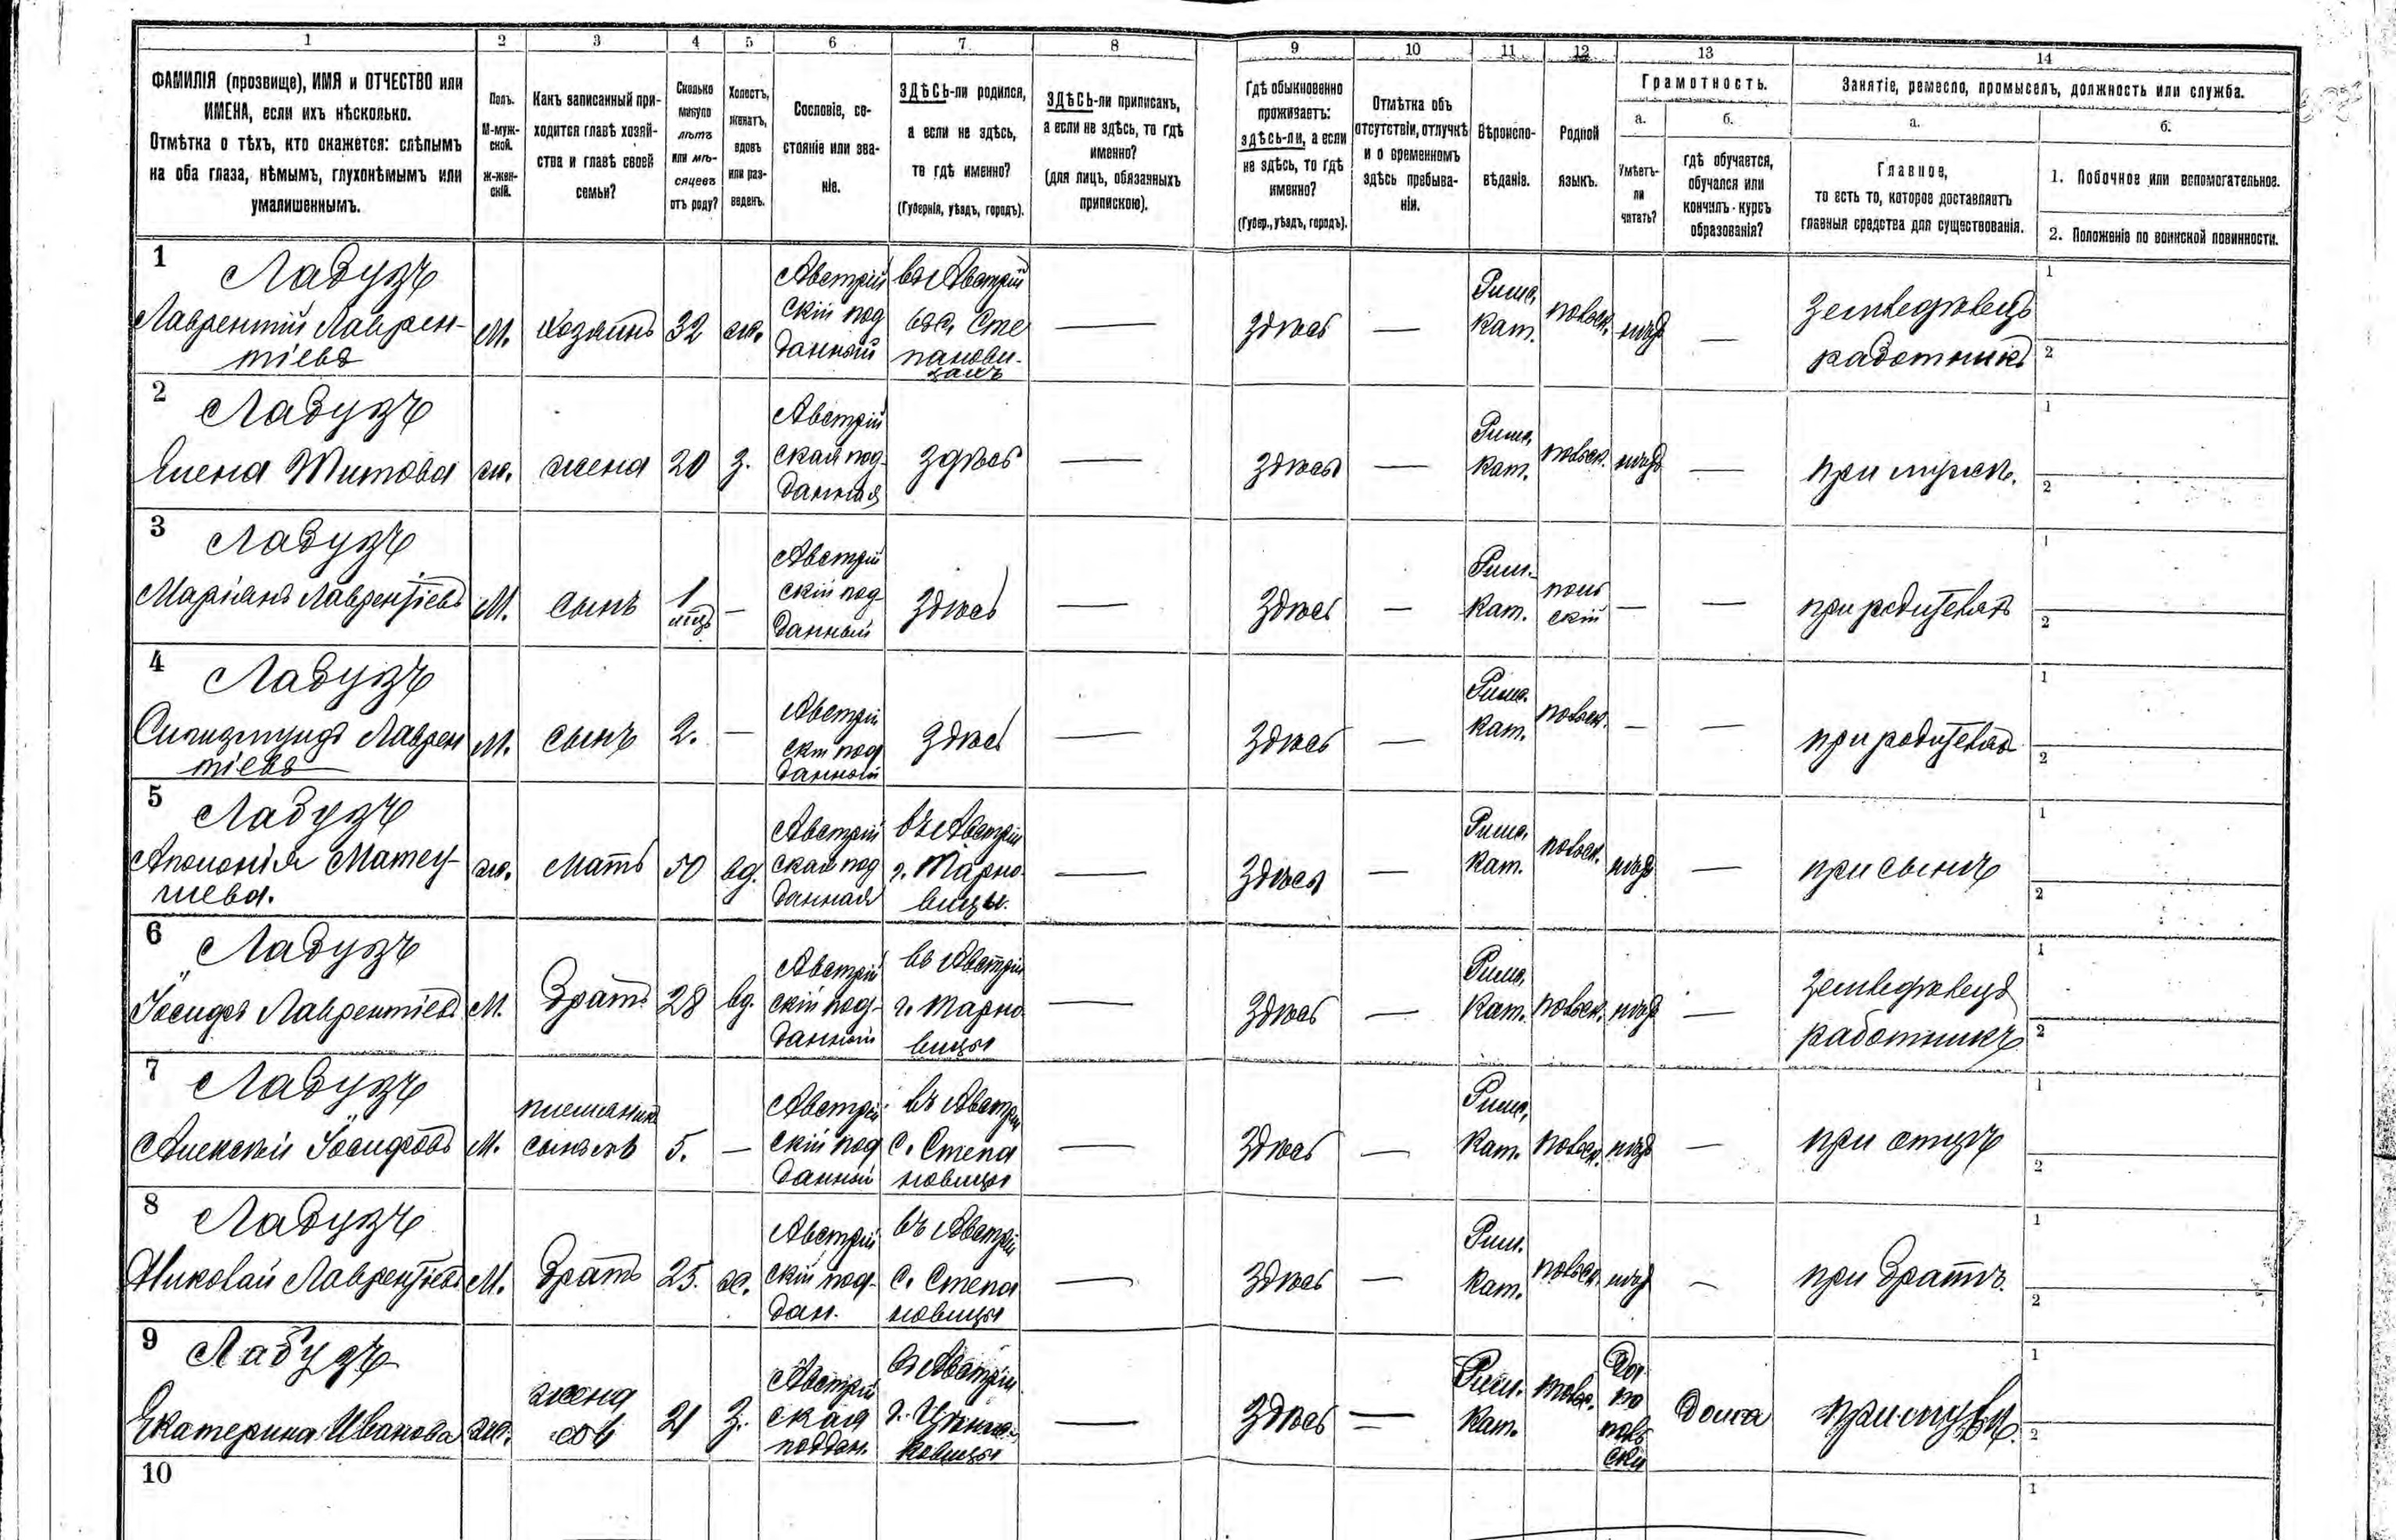 1 2 3 4 5 6 7 8 9 10 11 12 13 14
ФАМИЛІЯ (прозвище), ИМЯ и ОТЧЕСТВО или
ИМЕНА, если ихъ нѣсколько.
Отмѣтка о тѣхъ, кто окажется: слѣпымъ
на оба глаза, нѣмымъ, глухонѣмымъ или
умалишеннымъ.
Полъ.
М-муж-
ской.
Ж-жен-
скій.
Какъ записанный при-
ходится главѣ хозяй-
ства и главѣ своей
семьи?
Сколько
минуло
лѣтъ
или мѣ-
сяцевъ
отъ роду?
Холостъ,
женатъ,
вдовъ
или раз-
веденъ.
Сословіе, со-
стояніе или зва-
ніе.
ЗДѢСЬ-ли родился,
а если не здѣсь,
то гдѣ именно?
(Губернія, уѣздъ, городъ).
ЗДѢСЬ-ли приписанъ,
а если не здѣсь, то гдѣ
именно?
(для лицъ, обязанныхъ
припискою).
Гдѣ обыкновенно
проживаетъ:
здѣсь-ли, а если
не здѣсь, то гдѣ
именно?
(Губер., уѣздъ, городъ).
Отмѣтка объ
отсутствіи, отлучкѣ
и о временномъ
здѣсь пребыва-
ніи.
Вѣроиспо-
вѣданіе.
Родной
языкъ.
Грамотность.
а.
Умѣетъ-
ли
читать?
б.
гдѣ обучается,
обучался или
кончилъ-курсъ
образованія?
Занятіе, ремесло, промыселъ, должность или служба.
а.
Главное,
то есть то, которое доставляетъ
главныя средства для существованія.
б.
1. Побочное или вспомогательное.
2. Положеніе по воинской повинности.
1
Лабузъ
Лаврентій Лаврен-
тіевъ
М.
хозяинъ
32
ж.
Австрій
скій под
данный
въ Австріи
—
здѣсь
—
Рим.
кат.
польск.
—
земледѣлецъ
работникъ
1
2
2
Лабузъ
Елена Титова
ж.
жена
20
з.
Австрій
ская под
данная
здѣсь
—
здѣсь
—
Рим.
кат.
польск.
—
при муж.
1
2
3
Лабузъ
Маріанъ Лаврентіевъ
М.
сынъ
1
мѣц
—
Австрій
скій под
данный
здѣсь
—
здѣсь
—
Рим.
кат.
поль
скій
—
—
при родителяхъ
1
2
4
Лабузъ
Сигизмундъ Лаврен
тіевъ
М.
сынъ
2.
—
Австрій
скій под
данный
здѣсь
—
здѣсь
—
Рим.
кат.
польск.
—
—
при родителяхъ
1
2
5
Лабузъ
Аполонія Матеу-
шева.
ж.
мать
50
вд.
Австрій
ская под
данная
въ Австріи
г. Тарно
вицы.
—
здѣсь
—
Рим.
кат.
польск.
—
при сынѣ
1
2
6
Лабузъ
Іосифъ Лаврентіевъ
М.
братъ
28
вд.
Австрій
скій под-
данный
въ Австріи
г. Тарно
вицы
—
здѣсь
—
Рим.
кат.
польск.
—
земледѣлецъ
работникъ
1
2
7
Лабузъ
Алексѣй Іосифовъ
М.
племяникъ
5.
—
Австрій
скій под
данный
въ Австріи
с. Степа
новицы
—
здѣсь
—
Рим.
кат.
польск.
—
при отцѣ
1
2
8
Лабузъ
Николай Лаврентіевъ
М.
братъ
25.
ж.
Австрій
скій под-
дан.
въ Австріи
с. Степа
новицы
—
здѣсь
—
Рим.
кат.
польск.
—
при братѣ
1
2
9
Лабузъ
Екатерина Иванова
ж.
жена
21
з.
Австрій
ская
поддан.
въ Австріи
—
здѣсь
—
Рим.
кат.
польс.
Да
по
поль
ски
дома
при мужѣ
1
2
10
1